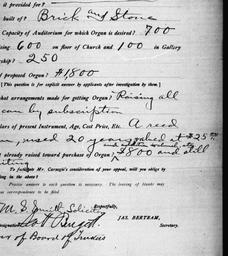 it provided for?
of built? Brick and Stone
Capacity of Auditorium for which Organ is desired? 700
600 on floor of Church and 100 in Gallery
rship? 250
proposed Organ? $1800
[This question is for explicit answers by applicants after investigation by them.]
hat arrangements made for getting Organ? Raising all
can by subscription
lars of present Instrument, Age, Cost Price, Etc. A reed
used 20 years valued at $25
nt already raised toward purchase of Organ $800 and still
iting
To facilitate Mr. Carnegie's consideration of your appeal, will you oblige by
in the above.
Precise answer to each question is necessary. The leaving of blanks may
correspondence to be filed.
Respectfully,
M. S. Smith Solicitor
JAS. BERTRAM,
Secretary.
of Board of Trustees